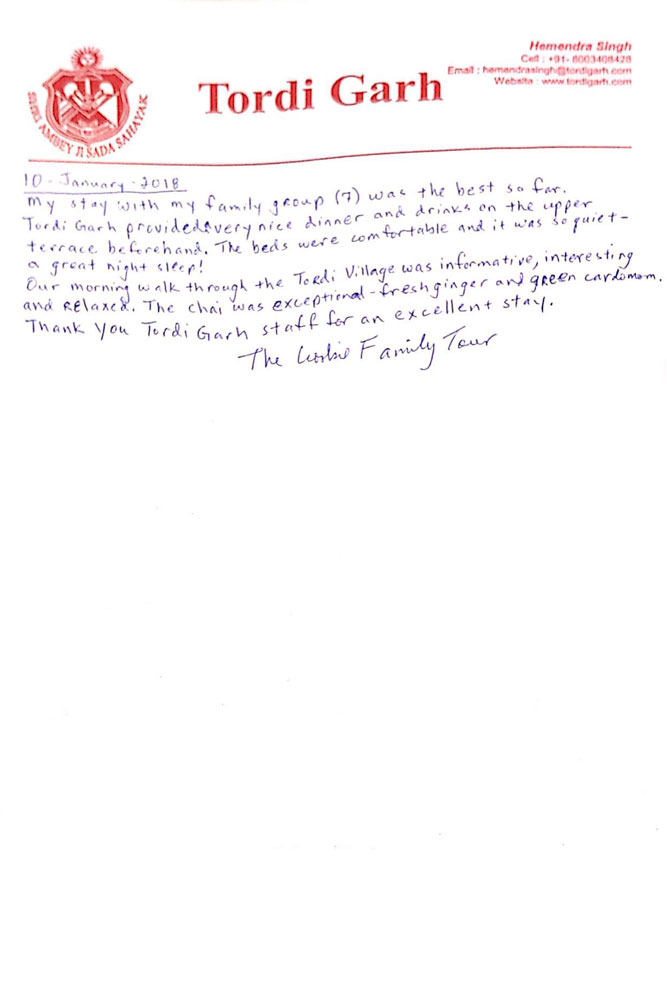 Hemendra Singh
Cell : +91- 6003408428
Email : hemendrasingh@tordigarh.com
Website : www.tordigarh.com
Tordi Garh
SHRI AMBEY JI SADA SAHAYAK
10 - January - 2018
My stay with my family group (7) was the best so far.
Tordi Garh provided a very nice dinner and drinks on the upper
terrace beforehand. The beds were comfortable and it was so quiet -
a great night sleep!
Our morning walk through the Tordi Village was informative, interesting
and relaxed. The chai was exceptional - fresh ginger and green cardomom.
Thank You Tordi Garh staff for an excellent stay.
The Family Tour